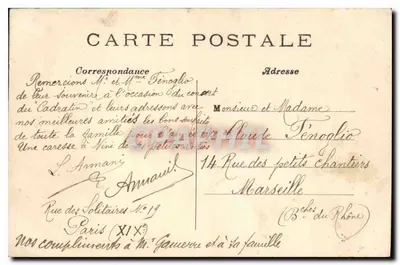 CARTE POSTALE
Correspondance
Adresse
Remercions Mr et Mme Fénoglio
de leur souvenir à l'occasion du
du Cadratin et leurs adressons avec
nos meilleures amitiés les bons souhaits
de toute la famille pour
Une caresse à
L. Armani
Armani
Rue des Solitaires No 19
Paris (XIXe)
nos compliments à Mr et à sa famille
Monsieur et Madame
Fénoglio
14 Rue des petits chantiers
Marseille
(Bches du Rhône)